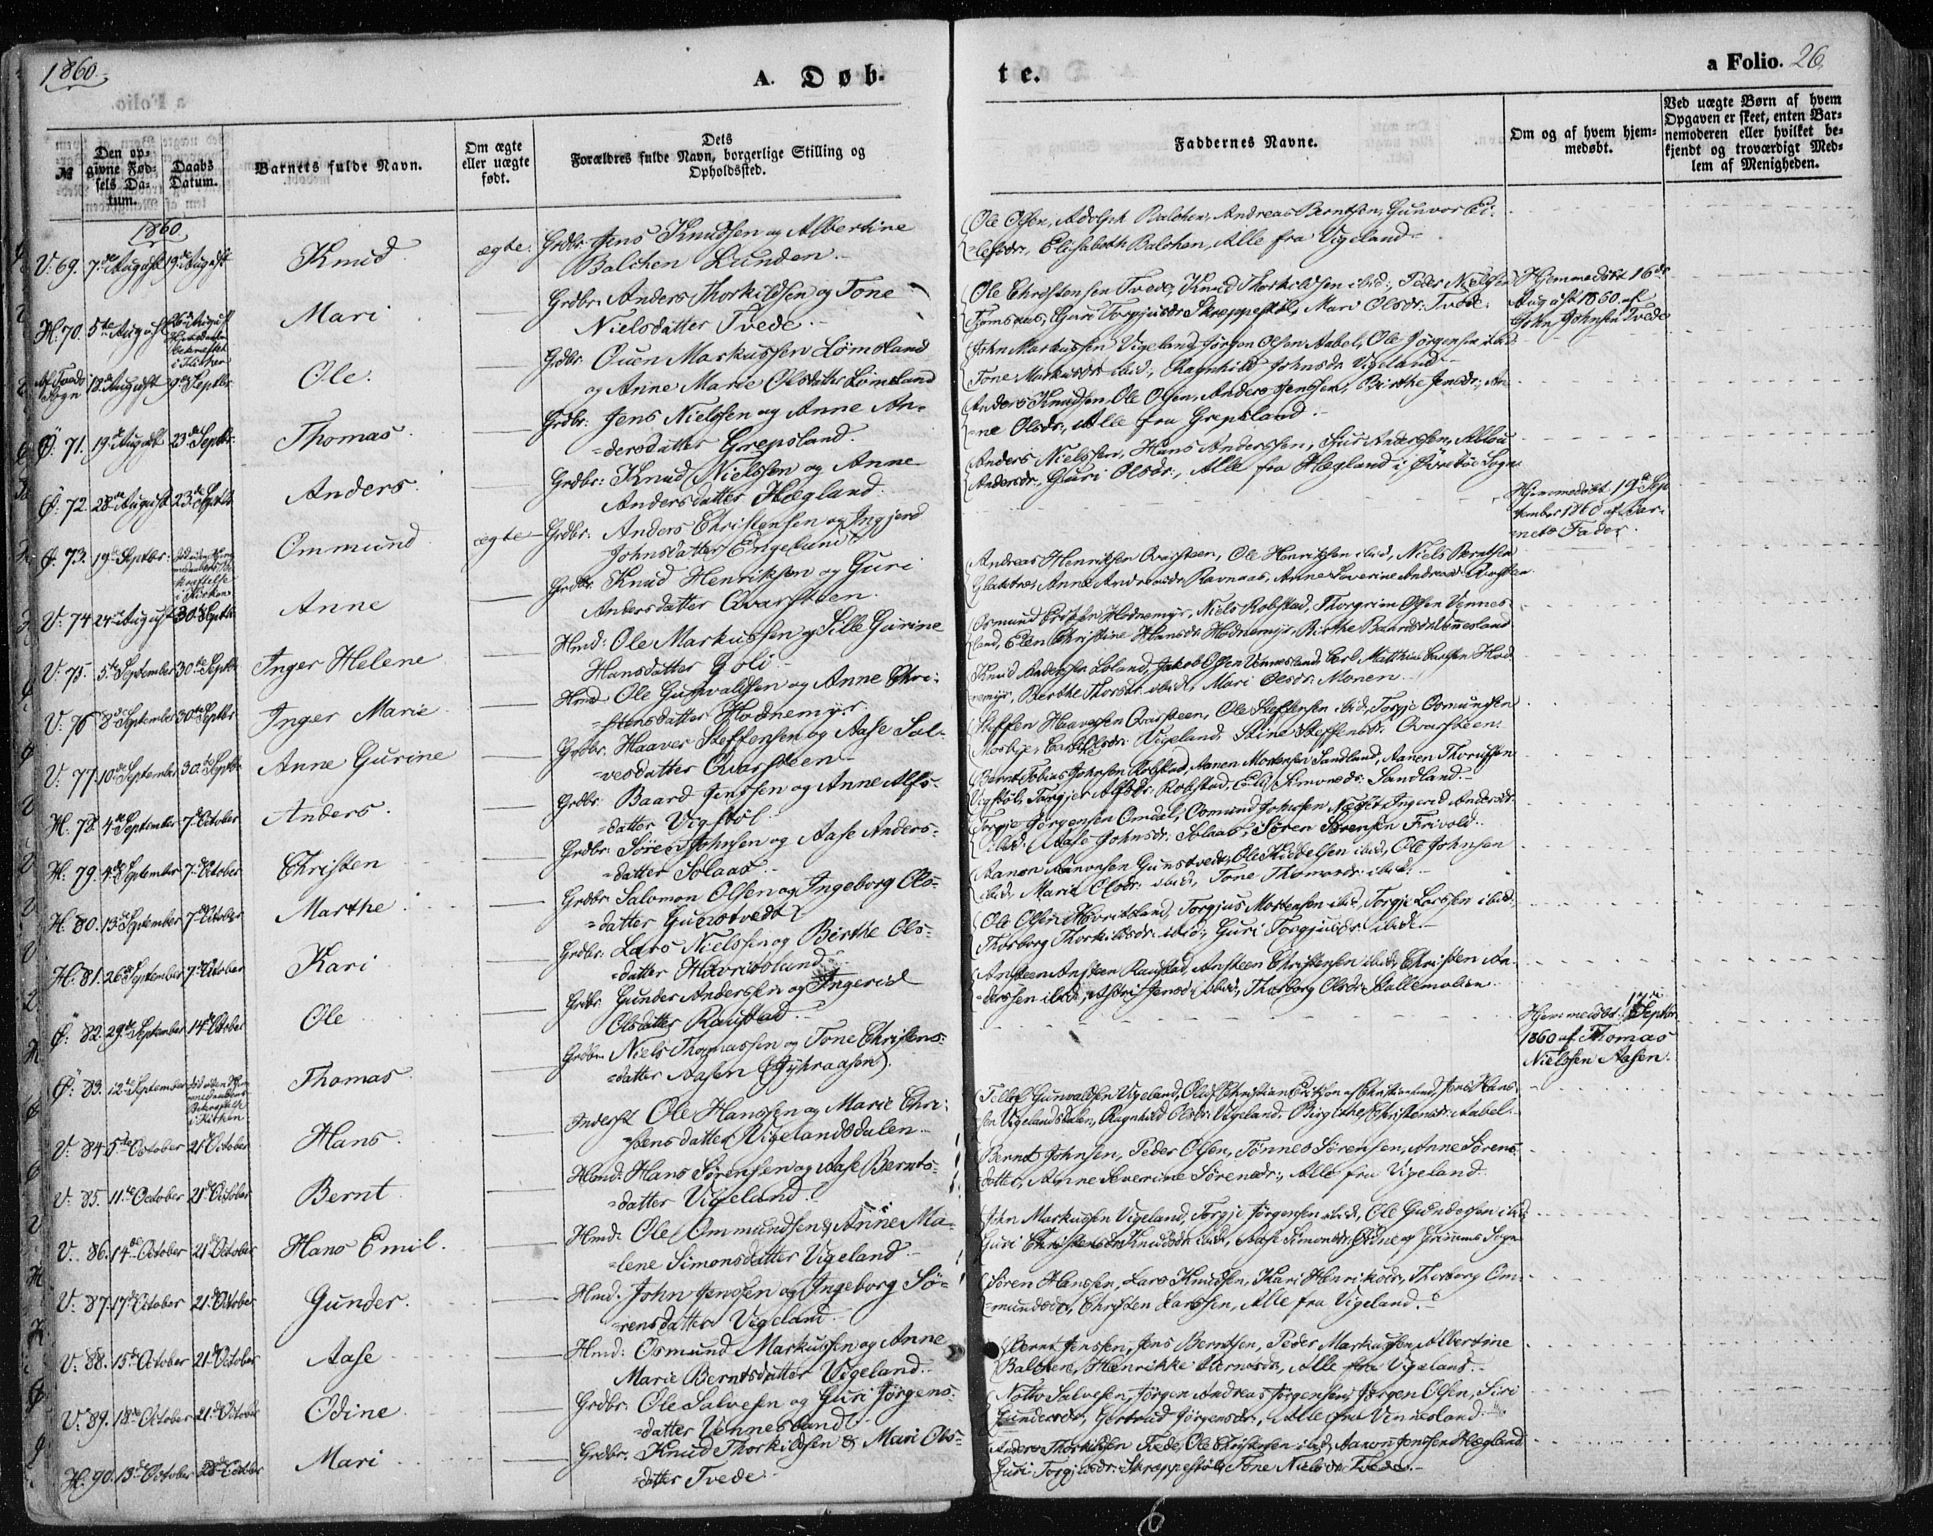 1860.
A. Døb-
te.
a Folio. 26
№
Den op-
givne Fød-
sels Da-
tum.
Daabs
Datum.
Barnets fulde Navn.
Om ægte
eller uægte
født.
Dets
Forældres fulde Navn, borgerlige Stilling og
Opholdssted.
Faddernes Navne.
Om og af hvem hjem-
medøbt.
Ved uægte Børn af hvem
Opgaven er skeet, enten Bar-
nemoderen eller hvilket be-
kjendt og troværdigt Med-
lem af Menigheden.
1860
V: 69. 7de August 19de August Knud ægte. Grdbr: Jens Knudsen og Albertine
Balchen Lunden.
Ole Olsen, Adolph Balchen, Andreas Berntsen, Gunvor Ei-
=lefsdr, Elisabeth Balchen, Alle fra Vigeland
H: 70. 5te August August Mari Grdbr: Anders Thorkildsen og Tone
Nielsdatter Tvede.
i Kirken
Ole Christensen Tvede, Knud Thorkildsen ibid, Peder Nielsen
Guri Torgjusdr Skreppestøl, Mari Olsdr: Tvede.
Hjemmedøbt 16de
August 1860 af
John Johnsen Tvede
Sogn 12te August 9de Septbr Ole. Grdbr: Ouen Markussen Lømsland
og Anne Marie Olsdatter Lømsland
John Markussen Vigeland, Jørgen Olsen Aabel, Ole Jørgensen ibid
Tone Markusdr ibid, Ragnhild Johnsdr Vigeland
Ø: 71. 19de August 23de Septbr: Thomas Grdbr: Jens Nielsen og Anne An-
=dersdatter Grepsland.
Anders Knudsen, Ole Olsen, Anders Jenssen, Birthe Jensdr, An-
=ne Olsdr, Alle fra Grepsland
Ø: 72. 28de August 23de Septbr Anders. Grdbr: Knud Nielssen og Anne
Andersdatter Hægland.
Anders Nielssen, Hans Anderssen, Andersen,
Andersdr, Guri Olsdr, Alle fra Hægland i Øvrebøe Sogn
Ø. 73. 19de Septbr. Ommund ægte Grdbr: Anders Christensen og Ingjerd
Johnsdatter Engeland
i Kirken
Hjemmedøbt 19de Sep
tember 1860 af Bar-
nets Fader.
V: 74 24de August 30te Septbr Anne Grdbr: Knud Henriksen og Guri
Andersdatter Qvarsteen.
Andreas Henriksen Qvarsteen, Ole Henriksen ibid, Niels Berntsen
Anne Andreasdr Ravnaas, Anne Severine Andreasdr Qvarsteen
V: 75. 5te September 30te Septbr Inger Helene Hmd: Ole Markussen og Sille Gurine
Hansdatter Goli
Osmund Hodnemyr, Niels Robstad, Thorgrim Olsen Vennes-
land, Elen Christine Hansdr Hodnemyr, Birthe Baardsdr Vennesland
V: 76 8de September 30te Septbr Inger Marie Hmd Ole Gunvaldsen og Anne Chri-
=stensdatter Hodnemyr
Knud Andersen Loland, Jakob Olsen Vennesland, Carl Matthias Hod-
nemyr, Berthe Thorsdr ibid, Mari Olsdr Monen
V: 77. 10de September 30te Septbr Anne Gurine Grdbr: Haaver Steffensen og Aase Sal-
=vesdatter Qvarsteen
Steffen Haaversen Qvarsteen, Ole Steffensen ibid, Torgje Osmundsen
Vigeland, Stine Steffensdr: Qvarsteen.
H: 78. 4de September 7de October Anders. Grdbr: Baard Jenssen og Anne Alfs-
=datter Vigstøl
Bernt Tobias Johnsen Robstad, Aanen Mortensen Sandland, Aanen
Vigstøl, Torgjer Alfsdr Robstad, Sandland.
H: 79. 4de September 7de October Christen Grdbr: Søren Johnsen og Aase Anders-
=datter Solaas
Torgje Jørgensen Omdal, Osmund Johnsen Ingerid Andersdr
ibid, Aase Johnsdr Solaas, Søren Sørensen Frivold.
H: 80. 13de September 7de October Marthe Grdbr: Salomon Olsen og Ingeborg Ols-
=datter Gunstvedt
Aanon Aanonsen Gunstvedt, Ole ibid, Ole Johnsen
ibid, Marie Olsdr ibid, Tone Thomasdr ibid.
H: 81. 26de September 7de October Kari Grdbr: Lars Nielssen og Birthe Ols-
=datter Hævrisland
Ole Olsen Hævrisland, Torgjus Mortensen ibid, Torgje Larssen ibid.
Thorborg Thorkildsdr ibid, Guri Torgjusdr ibid.
Ø: 82. 29de September 14de October Ole Grdbr: Gunder Andersen og Ingerid
Olsdatter Raustad
Ansteen Ansteensen Raustad, Ansteen Christensen ibid, Christen An-
=dersen ibid, Jensdr ibid, Thorborg Olsdr Stallemolien
Ø: 83. 12te September Thomas Grdbr: Niels Thomassen og Tone Christens-
=datter Aasen
i Kirken
Hjemmedøbt 17de Septbr
1860 af Thomas
Nielssen Aasen.
V: 84 5te October 21de October Hans. Inderst Ole Hanssen og Marie Chri-
=stensdatter Vigelandsdalen
Tellef Gunvaldsen Vigeland, Christian Jens Hans-
sen Vigelandsdalen, Ragnhild Olsdr Vigeland, Birgithe Christensdr Aabel.
V: 85. 11te October 21de October Bernt Hmd: Hans Sørensen og Aase Bernts-
=datter Vigeland
Bernt Johnsen, Peder Olsen, Tønnes Sørensen, Anne Sørens
datter, Anne Severine Sørensdr, Alle fra Vigeland
V. 86. 14de October 21de October Hans Emil. Hmd: Ole Ommundsen & Anne Ma-
=lene Simonsdatter Vigeland
John Markussen Vigeland, Torgje Jørgensen ibid, Ole Gundersen ibid
Guri Knudsdr ibid, Aase Simonsdr Sogn
V: 87. 17de October 21de October Gunder. Hmd: John Jenssen og Ingeborg Sø-
=rensdatter Vigeland
Søren Hanssen, Lars Knudsen, Kari Henriksdr, Thorborg Om-
=mundsdr, Christen Larssen, Alle fra Vigeland.
V: 88. 15de October 21de October Aase Hmd: Osmund Markussen og Anne
Marie Berntsdatter Vigeland.
Bernt Jenssen, Jens Berntsen, Peder Markussen, Albertine
Balchen, Henrikke Berntsdr, Alle fra Vigeland.
V: 89. 18de October 21de October Odine Grdbr: Ole Salvesen og Guri Jørgens-
=datter Vennesland
Salvesen, Jørgen Andreas Jørgensen, Jørgen Olsen, Siri
Gundersdr, Gertrud Jørgensdr, Alle fra Vennesland.
H: 90. 13de October 28de October Mari Grdbr: Knud Thorkildsen & Mari Ols-
=datter Tvede
Anders Thorkildsen Tvede, Ole Christensen ibid, Aanon Jenssen Hægland
Guri Torgjusdr: Skreppestøl, Tone Nielsdr Tvede.
6